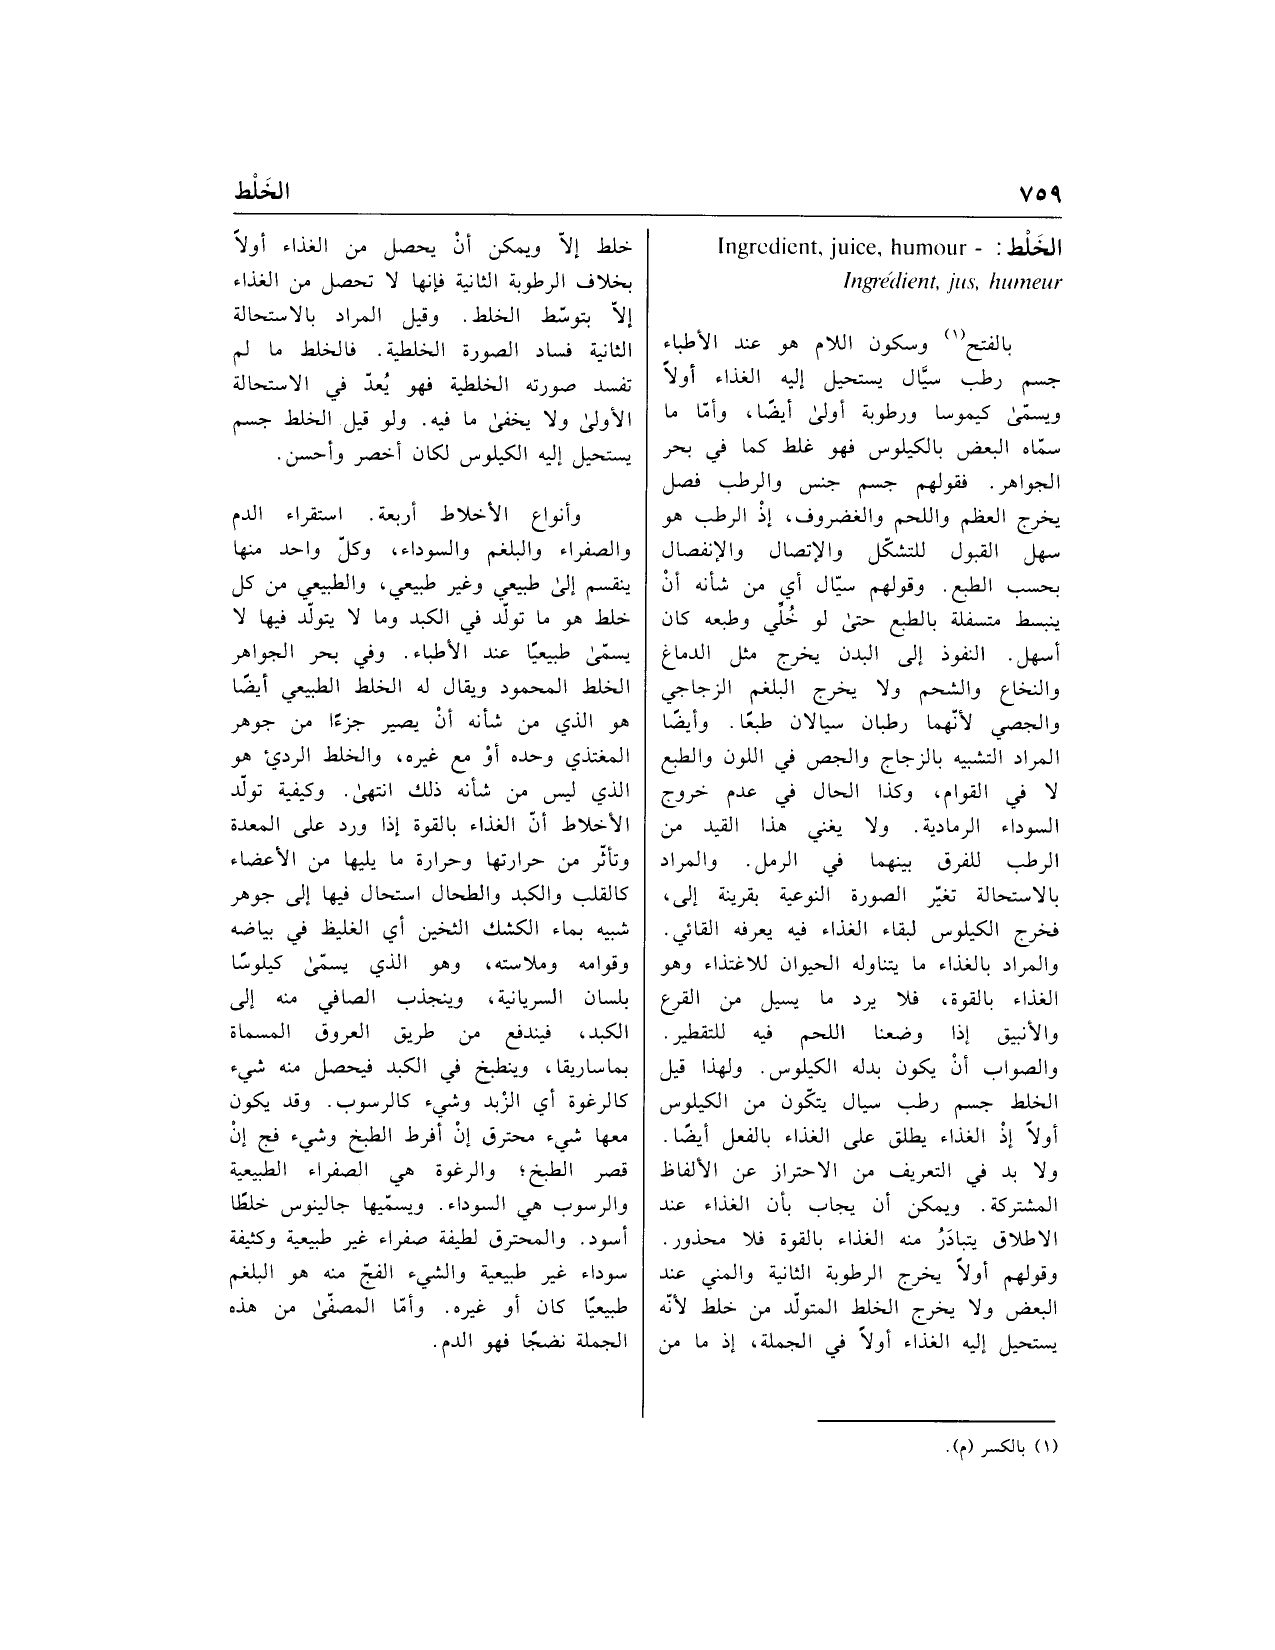 ٧٥٩
الخَلْط
الخَلْط : - Ingredient, juice, humour
Ingrédient, jus, humeur
بالفتح(١) وسكون اللام هو عند الأطباء
جسم رطب سيَّال يستحيل إليه الغذاء أولاً
ويسمّىٰ كيموسا ورطوبة أولىٰ أيضًا، وأمّا ما
سمّاه البعض بالكيلوس فهو غلط كما في بحر
الجواهر. فقولهم جسم جنس والرطب فصل
يخرج العظم واللحم والغضروف، إذْ الرطب هو
سهل القبول للتشكّل والإتصال والإنفصال
بحسب الطبع. وقولهم سيّال أي من شأنه أنْ
ينبسط متسفلة بالطبع حتىٰ لو خُلِّي وطبعه كان
أسهل. النفوذ إلى البدن يخرج مثل الدماغ
والنخاع والشحم ولا يخرج البلغم الزجاجي
والجصي لأنّهما رطبان سيالان طبعًا. وأيضًا
المراد التشبيه بالزجاج والجص في اللون والطبع
لا في القوام، وكذا الحال في عدم خروج
السوداء الرمادية. ولا يغني هذا القيد من
الرطب للفرق بينهما في الرمل. والمراد
بالاستحالة تغيّر الصورة النوعية بقرينة إلى،
فخرج الكيلوس لبقاء الغذاء فيه يعرفه القائي.
والمراد بالغذاء ما يتناوله الحيوان للاغتذاء وهو
الغذاء بالقوة، فلا يرد ما يسيل من القرع
والأنبيق إذا وضعنا اللحم فيه للتقطير.
والصواب أنْ يكون بدله الكيلوس. ولهذا قيل
الخلط جسم رطب سيال يتكّون من الكيلوس
أولاً إذْ الغذاء يطلق على الغذاء بالفعل أيضًا.
ولا بد في التعريف من الاحتراز عن الألفاظ
المشتركة. ويمكن أن يجاب بأن الغذاء عند
الاطلاق يتبادَرُ منه الغذاء بالقوة فلا محذور.
وقولهم أولاً يخرج الرطوبة الثانية والمني عند
البعض ولا يخرج الخلط المتولّد من خلط لأنّه
يستحيل إليه الغذاء أولاً في الجملة، إذ ما من
خلط إلاّ ويمكن أنْ يحصل من الغذاء أولاً
بخلاف الرطوبة الثانية فإنها لا تحصل من الغذاء
إلاّ بتوسّط الخلط. وقيل المراد بالاستحالة
الثانية فساد الصورة الخلطية. فالخلط ما لم
تفسد صورته الخلطية فهو يُعدّ في الاستحالة
الأولىٰ ولا يخفىٰ ما فيه. ولو قيل الخلط جسم
يستحيل إليه الكيلوس لكان أخصر وأحسن.
وأنواع الأخلاط أربعة. استقراء الدم
والصفراء والبلغم والسوداء، وكلّ واحد منها
ينقسم إلىٰ طبيعي وغير طبيعي، والطبيعي من كل
خلط هو ما تولّد في الكبد وما لا يتولّد فيها لا
يسمّىٰ طبيعيًا عند الأطباء. وفي بحر الجواهر
الخلط المحمود ويقال له الخلط الطبيعي أيضًا
هو الذي من شأنه أنْ يصير جزءًا من جوهر
المغتذي وحده أوْ مع غيره، والخلط الردئ هو
الذي ليس من شأنه ذلك انتهىٰ. وكيفية تولّد
الأخلاط أنّ الغذاء بالقوة إذا ورد على المعدة
وتأثّر من حرارتها وحرارة ما يليها من الأعضاء
كالقلب والكبد والطحال استحال فيها إلى جوهر
شبيه بماء الكشك الثخين أي الغليظ في بياضه
وقوامه وملاسته، وهو الذي يسمّىٰ كيلوسًا
بلسان السريانية، وينجذب الصافي منه إلى
الكبد، فيندفع من طريق العروق المسماة
بماساريقا، وينطبخ في الكبد فيحصل منه شيء
كالرغوة أي الزْبد وشيء كالرسوب. وقد يكون
معها شيء محترق إنْ أفرط الطبخ وشيء فج إنْ
قصر الطبخ؛ والرغوة هي الصفراء الطبيعية
والرسوب هي السوداء. ويسمّيها جالينوس خلطًا
أسود. والمحترق لطيفة صفراء غير طبيعية وكثيفة
سوداء غير طبيعية والشيء الفجّ منه هو البلغم
طبيعيًا كان أو غيره. وأمّا المصفّىٰ من هذه
الجملة نضجًا فهو الدم.
(١) بالكسر (م).